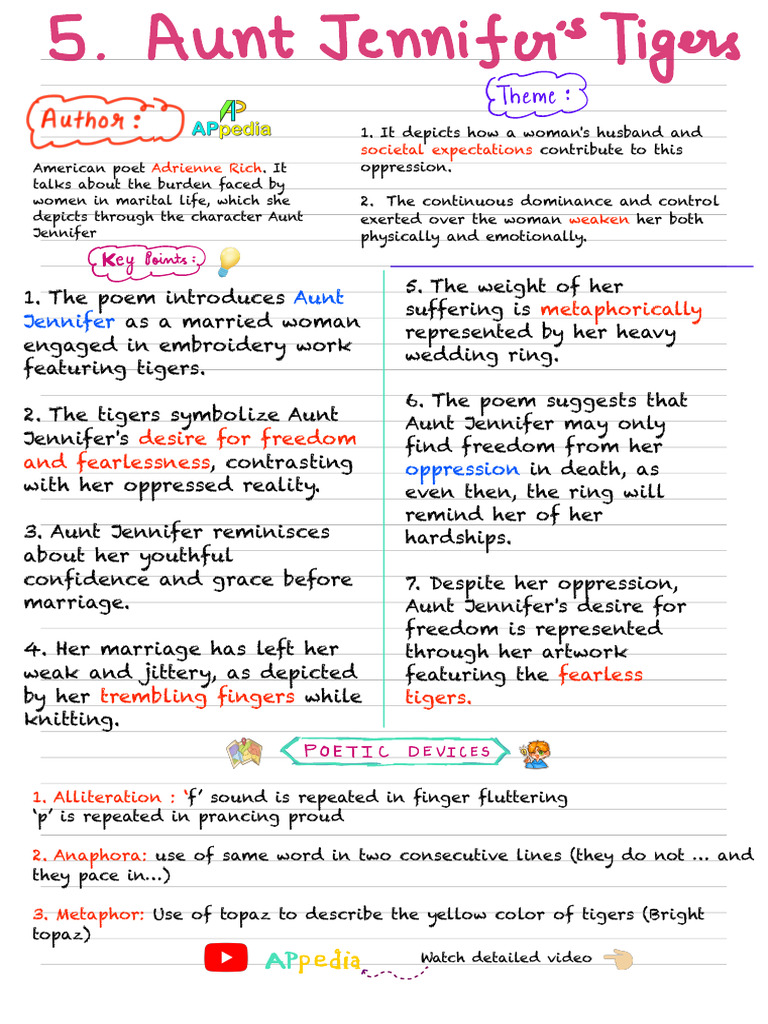 5. Aunt Jennifer's Tigers
Author:
AP
APpedia
American poet Adrienne Rich. It
talks about the burden faced by
women in marital life, which she
depicts through the character Aunt
Jennifer
Theme:
1. It depicts how a woman's husband and
societal expectations contribute to this
oppression.
2. The continuous dominance and control
exerted over the woman weaken her both
physically and emotionally.
Key Points:
1. The poem introduces Aunt
Jennifer as a married woman
engaged in embroidery work
featuring tigers.
2. The tigers symbolize Aunt
Jennifer's desire for freedom
and fearlessness, contrasting
with her oppressed reality.
3. Aunt Jennifer reminisces
about her youthful
confidence and grace before
marriage.
4. Her marriage has left her
weak and jittery, as depicted
by her trembling fingers while
knitting.
5. The weight of her
suffering is metaphorically
represented by her heavy
wedding ring.
6. The poem suggests that
Aunt Jennifer may only
find freedom from her
oppression in death, as
even then, the ring will
remind her of her
hardships.
7. Despite her oppression,
Aunt Jennifer's desire for
freedom is represented
through her artwork
featuring the fearless
tigers.
POETIC DEVICES
1. Alliteration : 'f' sound is repeated in finger fluttering
'p' is repeated in prancing proud
2. Anaphora: use of same word in two consecutive lines (they do not ... and
they pace in...)
3. Metaphor: Use of topaz to describe the yellow color of tigers (Bright
topaz)
APpedia
Watch detailed video